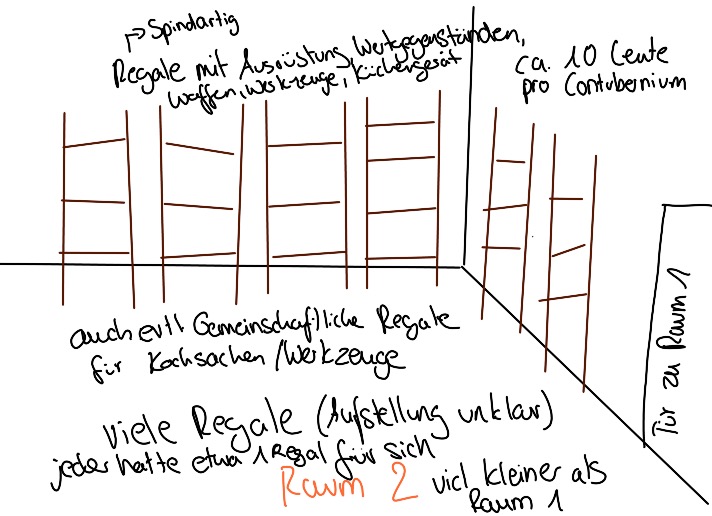 → Spindartig
Regale mit Ausrüstung, Wertgegenständen,
Waffen, Werkzeuge, Küchengerät
ca. 10 Leute
pro Contubernium
auch evtl Gemeinschaftliche Regale
für Kochsachen/Werkzeuge
Tür zu Raum 1
viele Regale (Aufstellung unklar)
jeder hatte etwa 1 Regal für sich
Raum 2 viel kleiner als
Raum 1